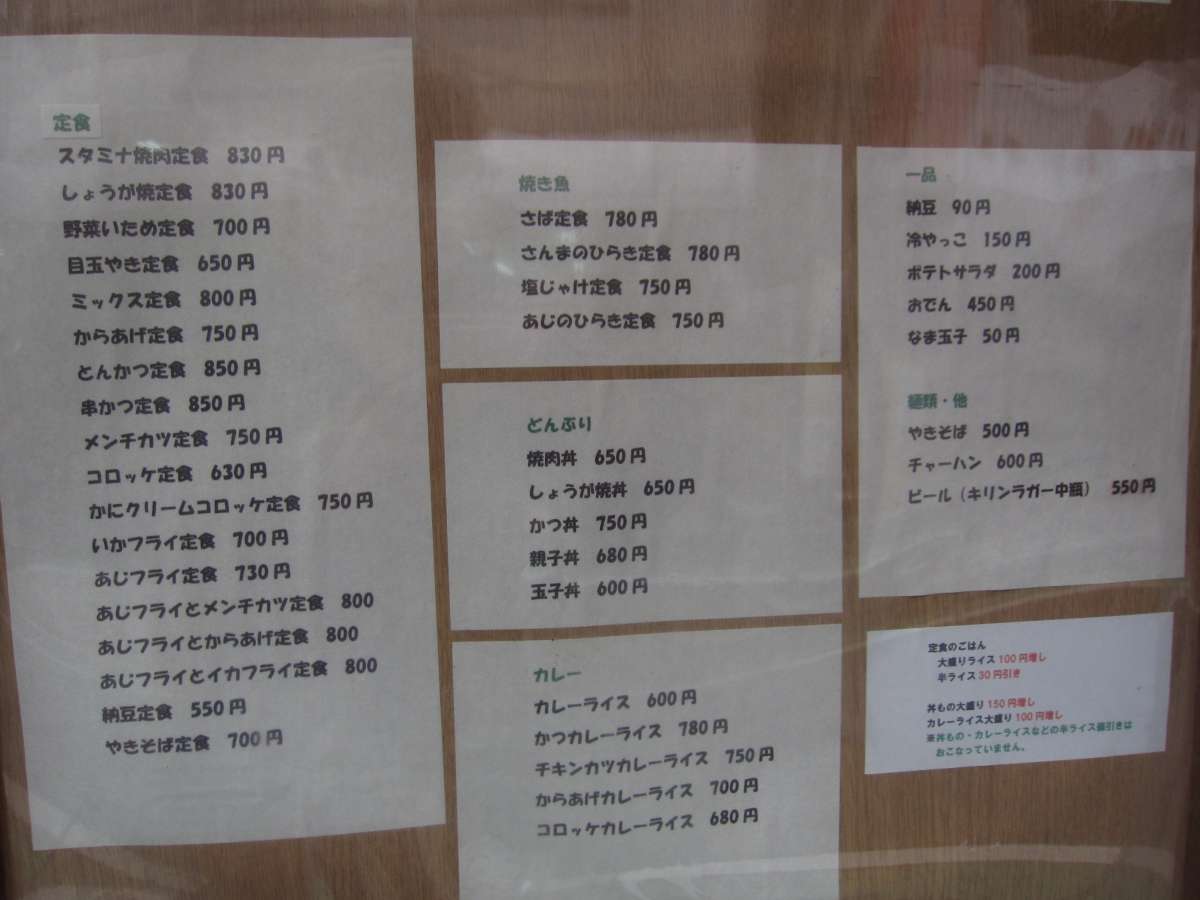 定食
スタミナ焼肉定食 830円
しょうが焼定食 830円
野菜いため定食 700円
目玉やき定食 650円
ミックス定食 800円
からあげ定食 750円
とんかつ定食 850円
串かつ定食 850円
メンチカツ定食 750円
コロッケ定食 630円
かにクリームコロッケ定食 750円
いかフライ定食 700円
あじフライ定食 730円
あじフライとメンチカツ定食 800
あじフライとからあげ定食 800
あじフライとイカフライ定食 800
納豆定食 550円
やきそば定食 700円
焼き魚
さば定食 780円
さんまのひらき定食 780円
塩じゃけ定食 750円
あじのひらき定食 750円
どんぶり
焼肉丼 650円
しょうが焼丼 650円
かつ丼 750円
親子丼 680円
玉子丼 600円
カレー
カレーライス 600円
かつカレーライス 780円
チキンカツカレーライス 750円
からあげカレーライス 700円
コロッケカレーライス 680円
一品
納豆 90円
冷やっこ 150円
ポテトサラダ 200円
おでん 450円
なま玉子 50円
麺類・他
やきそば 500円
チャーハン 600円
ビール（キリンラガー中瓶） 550円
定食のごはん
大盛りライス100円増し
半ライス30円引き
丼もの大盛り150円増し
カレーライス大盛り100円増し
※丼もの・カレーライスなどの半ライス値引きは
おこなっていません。